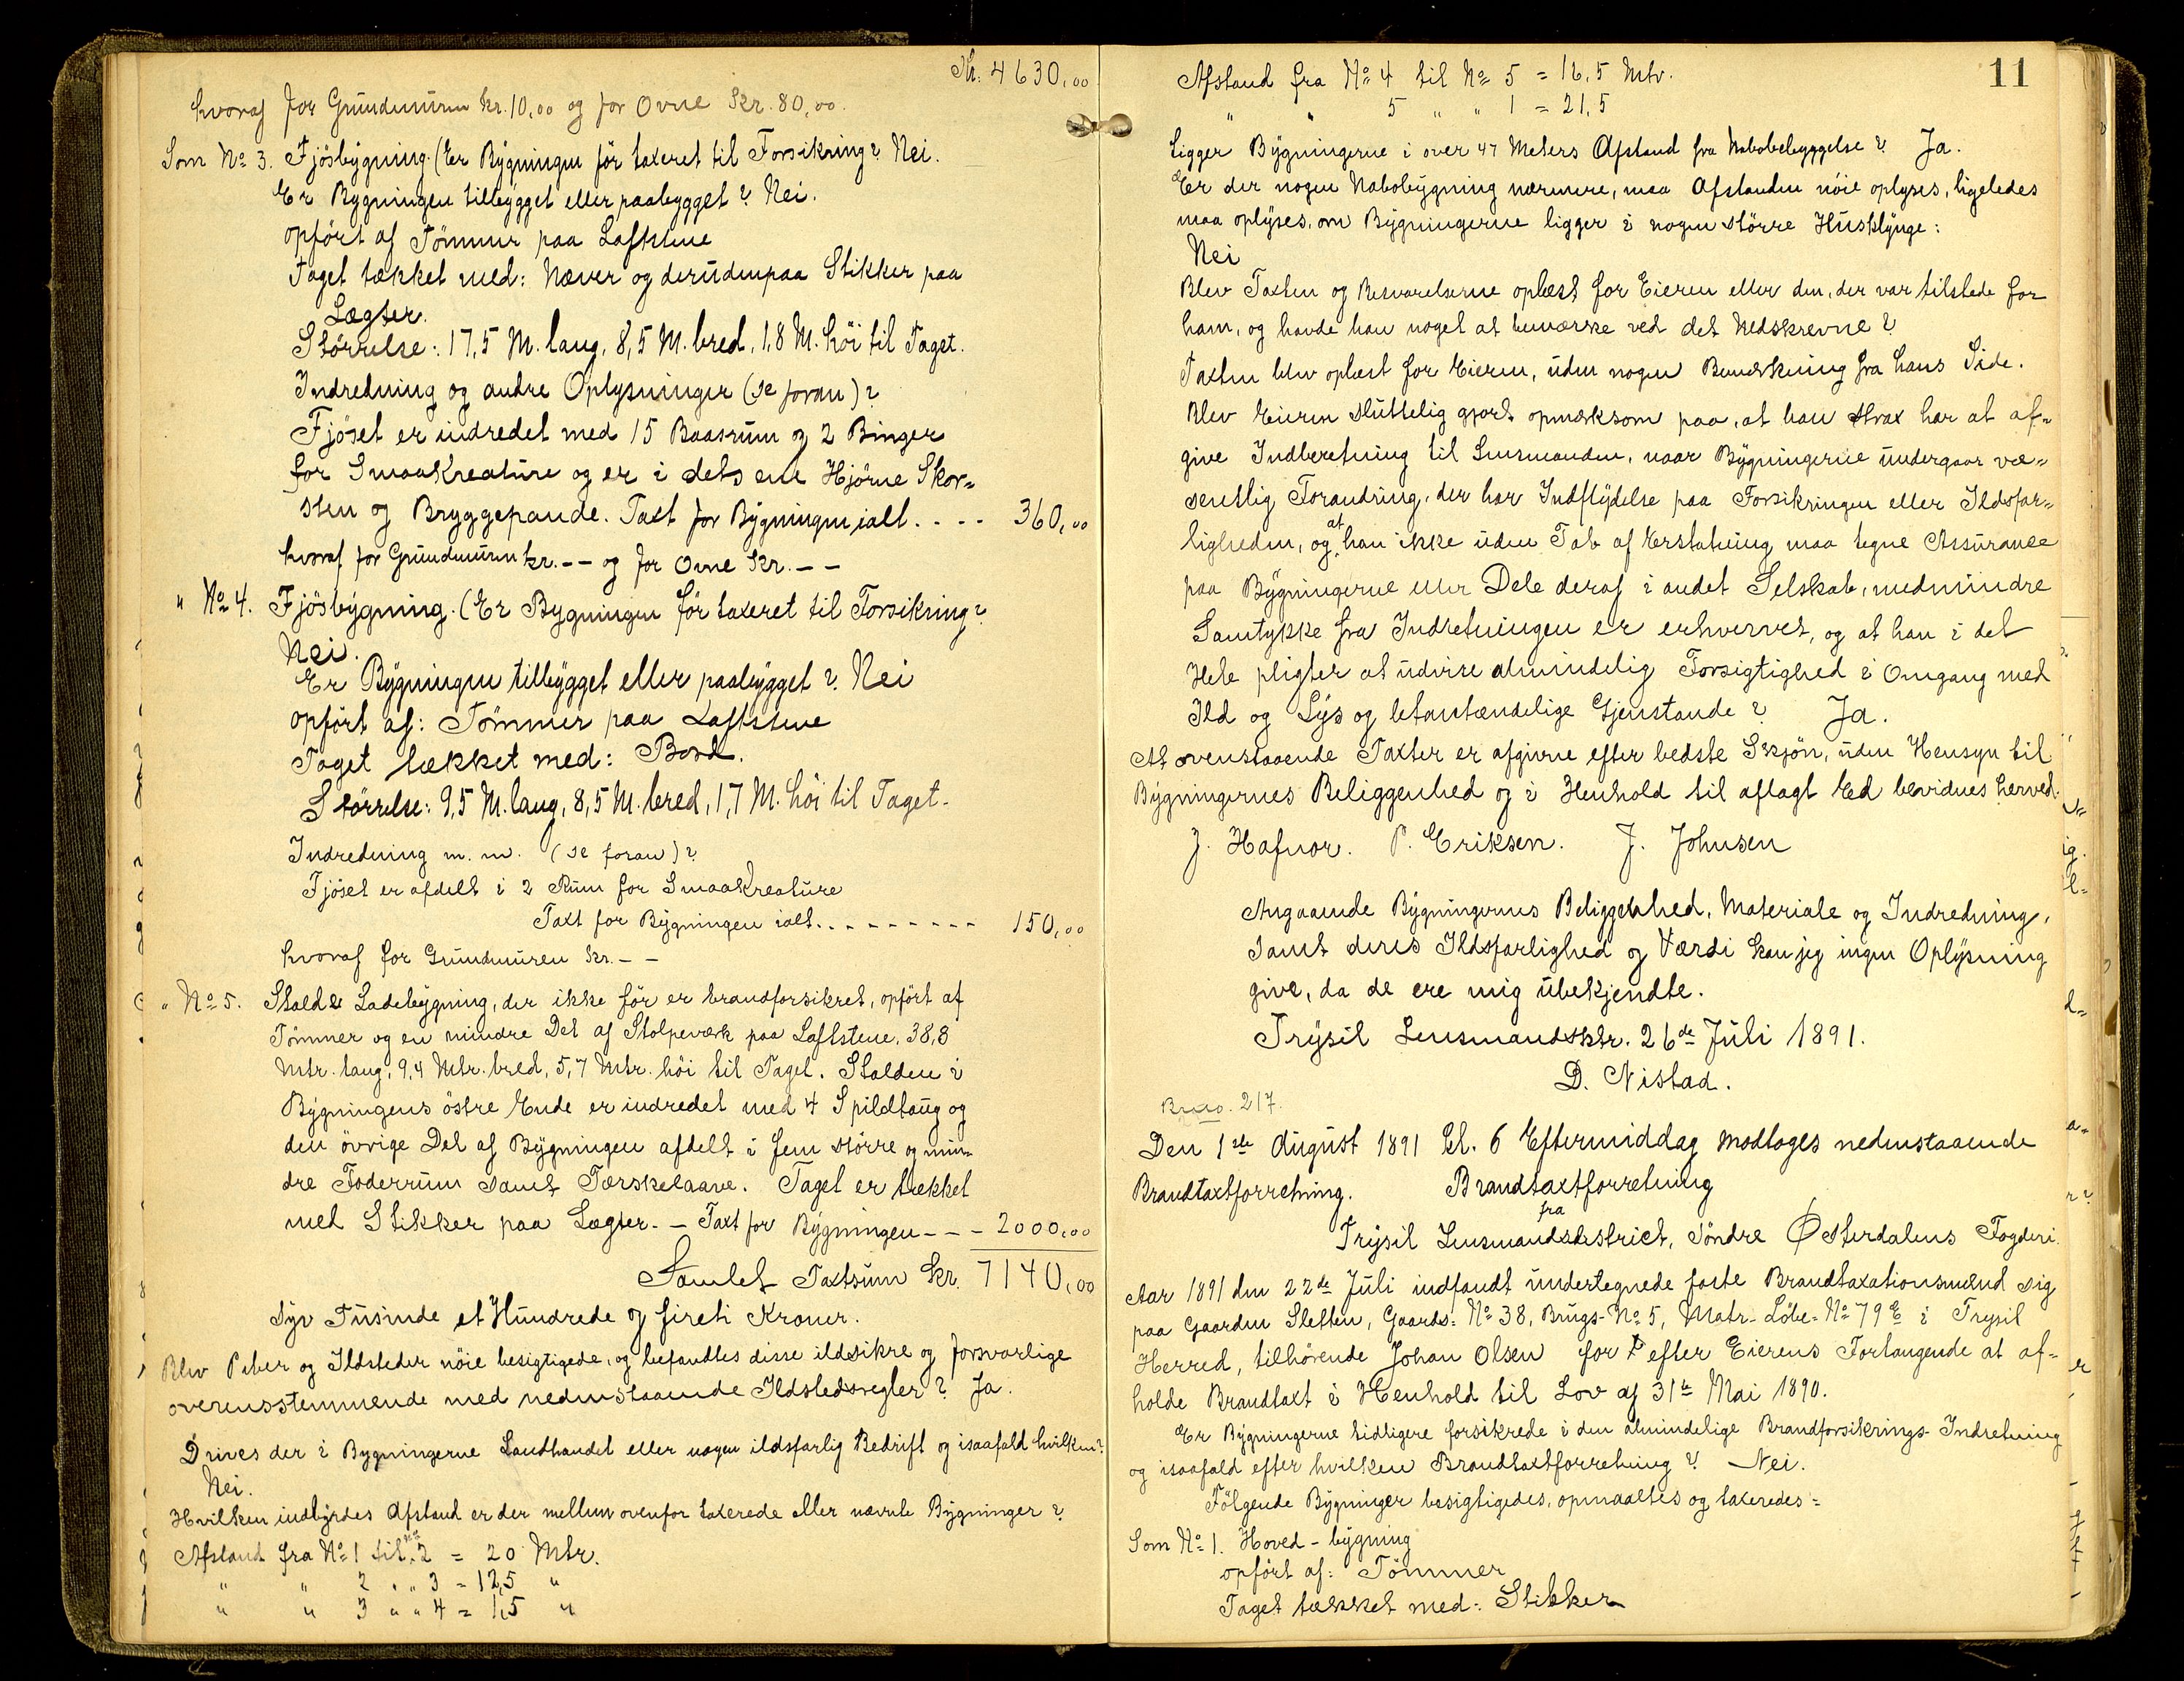 Kr. 4630,00
hvoraf for Grundmuren Kr. 10,00 og for Ovne Kr. 80,00.
Som No 3. Fjösbygning. (Er Bygningen för taxeret til Forsikring? Nei.
Er Bygningen tilbygget eller paabygget? Nei.
opfört af Tömmer paa Laftstene
Taget tækket med: Næver og derudenpaa Stikker paa
Lægter.
Störrelse: 17,5 M. lang, 8,5 M. bred, 1,8 M. höi til Taget.
Indredning og andre Oplysninger (se foran)?
Fjöset er indredet med 15 Baasrum og 2 Binger
for Smaakreature og er i dets ene Hjörne Skor-
sten og Bryggepande. Taxt for Bygningen ialt.... 360,00
hvoraf for Grundmuren kr. -- og for Ovne Kr. --
" No 4. Fjösbygning. (Er Bygningen för taxeret til Forsikring?
Nei.
Er Bygningen tilbygget eller paabygget? Nei
opfört af: Tömmer paa Laftstene
Taget tækket med: Bord.
Störrelse: 9,5 M. lang, 8,5 M. bred, 1,7 M. höi til Taget.
Indredning m. m. (se foran)?
Fjöset er afdelt i 2 Rum for Smaakreature
Taxt for Bygningen ialt.......... 150,00
hvoraf for Grundmuren Kr. --
" No 5. Stald & Ladebygning, der ikke för er brandforsikret, opfört af
Tömmer og en mindre Del af Stolpeværk paa Laftstene, 38,8
Mtr. lang, 9,4 Mtr. bred, 5,7 Mtr. höi til Taget. Stalden i
Bygningens östre Ende er indredet med 4 Spildtaug og
den övrige Del af Bygningen afdelt i fem större og min-
dre Foderrum samt Tærskelaave. Taget er tækket
med Stikker paa Lægter. - Taxt for Bygningen - - - 2000,00
Samlet Taxtsum Kr. 7140,00
Syv Tusinde et Hundrede og fireti Kroner.
Blev Piber og Ildsteder nöie besigtigede, og befandtes disse ildsikre og forsvarlige
overensstemmende med nedenstaaende Ildstedsregler? Ja.
Drives der i Bygningerne Landhandel eller nogen ildsfarlig Bedrift og isaafald hvilken?
Nei.
Hvilken indbyrdes Afstand er der mellem ovenfor taxerede eller nævnte Bygninger?
Afstand fra No 1 til No 2 = 20 Mtr.
" " 2 " " 3 = 12,5 "
" " 3 " " 4 = 1,5 "
11
Afstand fra No 4 til No 5 = 16,5 Mtr.
" " 5 " " 1 = 21,5
Ligger Bygningerne i over 47 Meters Afstand fra Nabobebyggelse? Ja.
Er der nogen Nabobygning nærmere, maa Afstanden nöie oplyses, ligeledes
maa oplyses, om Bygningerne ligger i nogen större Husklynge:
Nei
Blev Taxten og Besvarelserne oplæst for Eieren eller den, der var tilstede for
ham, og havde han noget at bemærke ved det Nedskrevne?
Taxten blev oplæst for Eieren, uden nogen Bemærkning fra hans Side.
Blev Eieren sluttelig gjort opmærksom paa, at han strax har at af-
give Indberetning til Lensmanden, naar Bygningerne undergaar væ-
sentlig Forandring, der har Indflydelse paa Forsikringen eller Ildsfar-
ligheden, og at han ikke uden Tab af Erstatning maa tegne Assurance
paa Bygningerne eller Dele deraf i andet Selskab, medmindre
Samtykke fra Indretningen er erhvervet, og at han i det
Hele pligter at udvise almindelig Forsigtighed i Omgang med
Ild og Lys og letantændelige Gjenstande? Ja.
At ovenstaaende Taxter er afgivne efter bedste Skjön, uden Hensyn til
Bygningernes Beliggenhed og i Henhold til aflagt Ed bevidnes herved.
J. Hafnor. P. Eriksen. J. Johnsen
Angaaende Bygningernes Beliggenhed, Materiale og Indredning,
samt deres Ildsfarlighed og Værdi kan jeg ingen Oplysning
give, da de ere mig ubekjendte.
Trysil Lensmandsktr. 26de Juli 1891.
D. Nistad.
217.
Den 1ste August 1891 Kl. 6 Eftermiddag modtoges nedenstaaende
Brandtaxtforretning. Brandtaxtforretning
fra
Trysil Lensmandsdistrict, Söndre Østerdalens Fogderi.
Aar 1891 den 22de Juli indfandt undertegnede faste Brandtaxationsmænd sig
paa Gaarden Sletten, Gaards-No 38, Brugs-No 5, Matr-Löbe-No 79 i Trysil
Herred, tilhörende Johan Olsen for efter Eierens Forlangende at af-
holde Brandtaxt i Henhold til Lov af 31te Mai 1890.
Er Bygningerne tidligere forsikrede i den almindelige Brandforsikrings-Indretning
og isaafald efter hvilken Brandtaxtforretning? Nei.
Fölgende Bygninger besigtigedes, opmaaltes og taxeredes:
Som No 1. Hoved-bygning
opfört af: Tömmer
Taget tækket med: Stikker